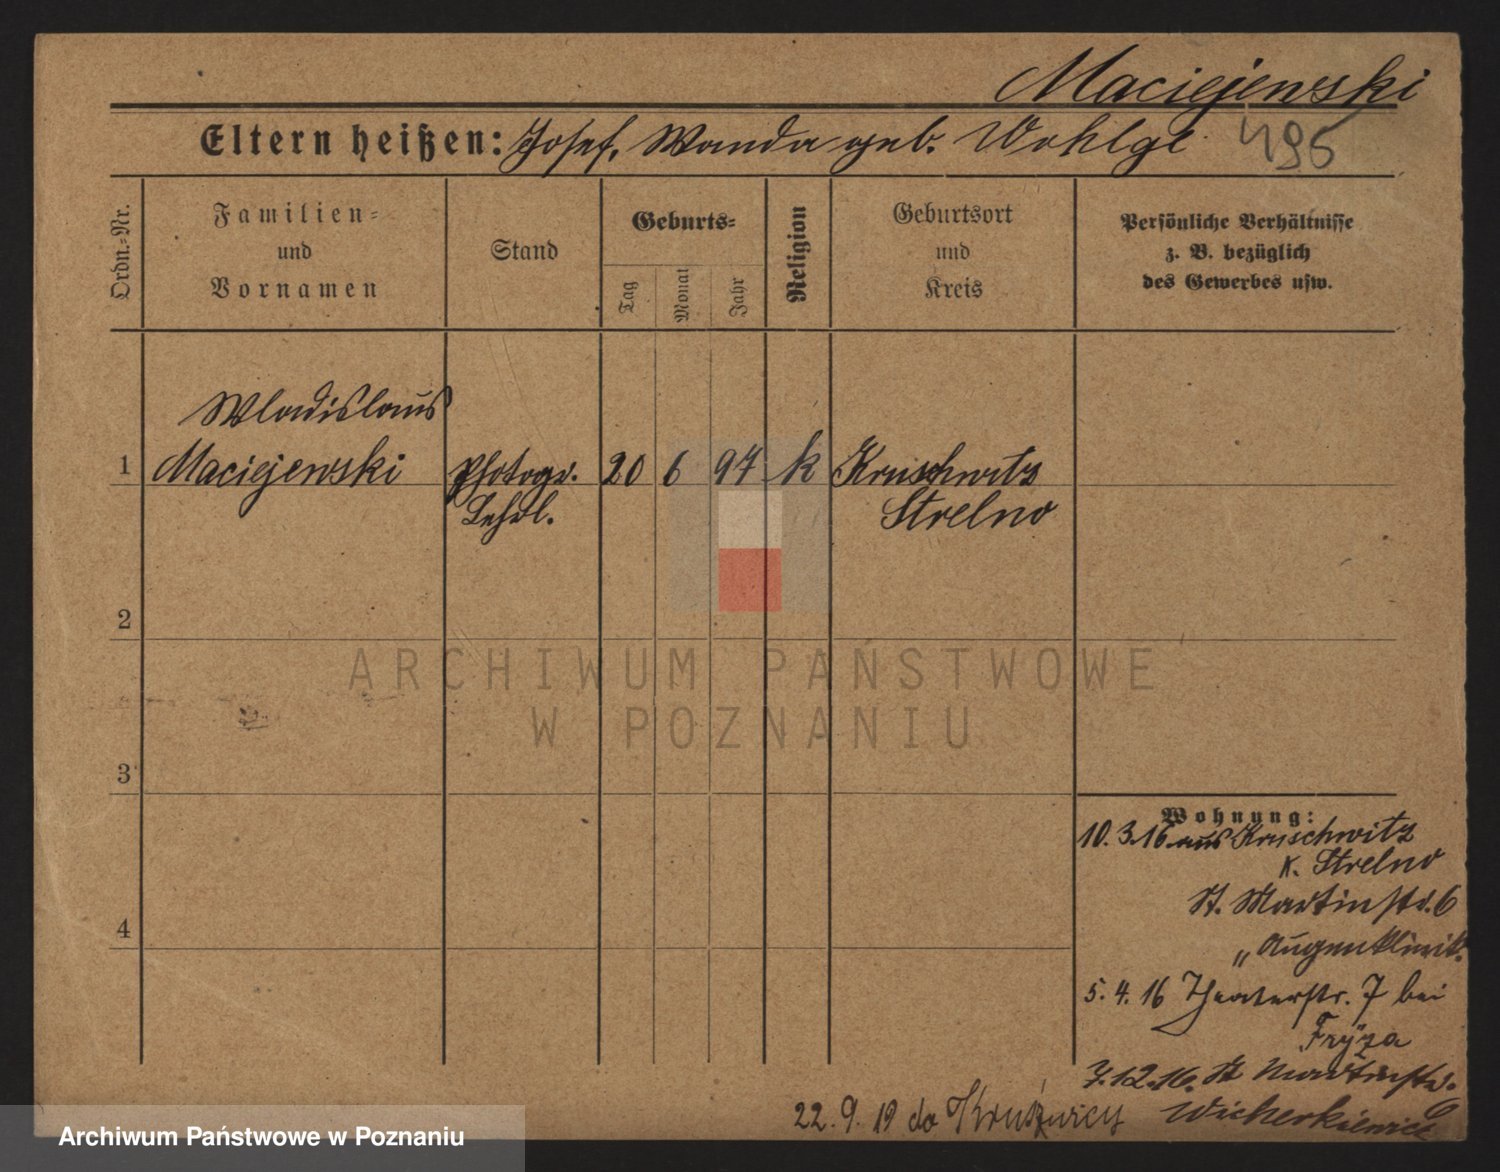 Maciejewski
Eltern heißen: Josef, Wanda geb. Wohlge 495
Ordn.=Nr.
Familien=
und
Vornamen
Stand
Geburts=
Tag
Monat
Jahr
Religion
Geburtsort
und
Kreis
Persönliche Verhältnisse
z. B. bezüglich
des Gewerbes usw.
Wladislaus
1 Maciejewski Photogr. 20 6 97 k Kruschwitz
Lehrl. Strelno
2
ARCHIWUM PAŃSTWOWE
W POZNANIU
3
Wohnung:
10.3.16 aus Kruschwitz
K. Strelno
St. Martinstr. 6
„Augenklinik"
4
5.4.16 Theaterstr. 7 bei
Fryza
7.12.16. St Martinstr. 6
Wicherkiewicz
22.9.19 do Kruszwicy
Archiwum Państwowe w Poznaniu